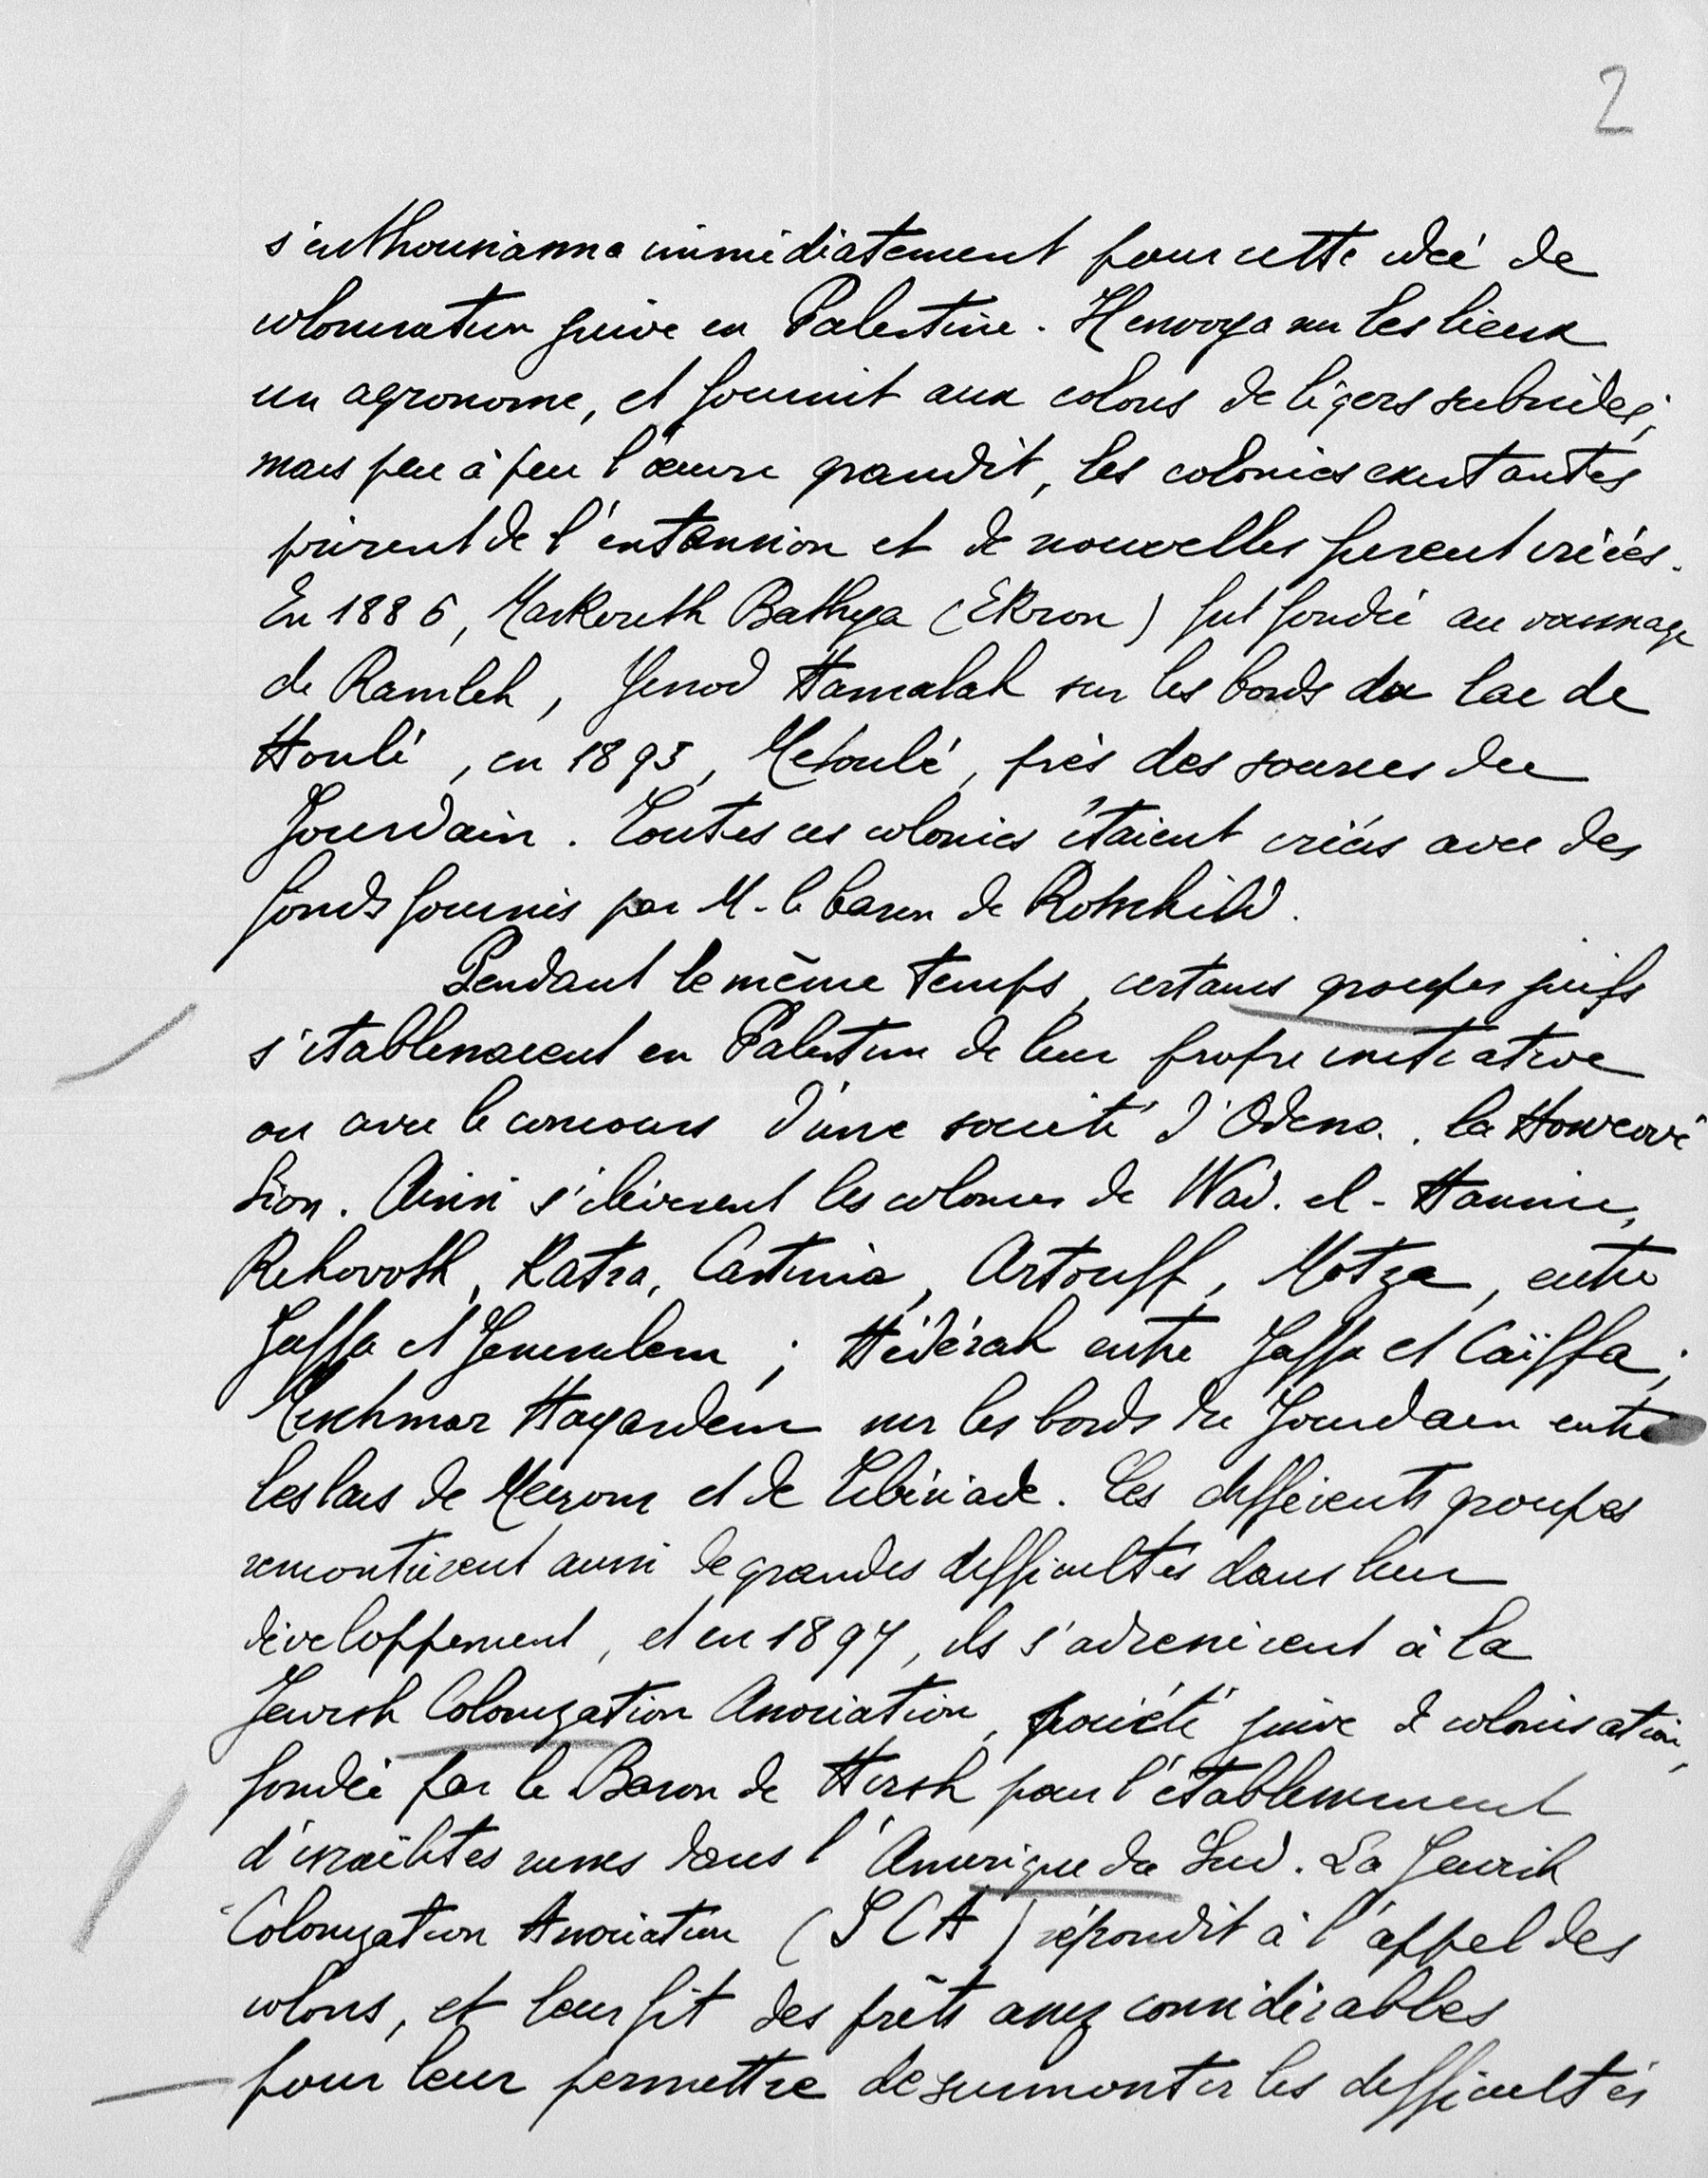 2
s'enthousiasma immédiatement pour cette idée de
colonisation juive en Palestine. Il envoya sur les lieux
un agronome, et fournit aux colons de légers subsides;
mais peu à peu l'œuvre grandit, les colonies existantes
prirent de l'extension et de nouvelles furent créées.
En 1886, Maskereth Bathya (Ekron) fut fondée au voisinage
de Ramleh, Yessod Hamalah sur les bords du lac de
Houlé, en 1893, Metoulé, près des sources du
Jourdain. Toutes ces colonies étaient créées avec des
fonds fournis par M. le baron de Rotschild.
Pendant le même temps, certains groupes juifs
s'établissaient en Palestine de leur propre initiative
ou avec le concours d'une société d'Odessa, la Howevé
Sion. Ainsi s'élevèrent les colonies de Wad-el-Hanine,
Rehovoth, Katra, Castinia, Artouff, Motza, entre
Jaffa et Jerusalem; Hédérah entre Jaffa et Caïffa;
Mischmar Hayarden sur les bords du Jourdain entre
les lacs de Merom et de Tibériade. Ces différents groupes
rencontrèrent aussi de grandes difficultés dans leur
développement, et en 1897, ils s'adressèrent à la
Jewish Colonization Association, société juive de colonisation,
fondée par le Baron de Hirsh pour l'établissement
d'israëlites russes dans l'Amerique du Sud. La Jewish
Colonization Association (ICA) répondit à l'appel des
colons, et leur fit des prêts assez considérables
pour leur permettre de surmonter les difficultés